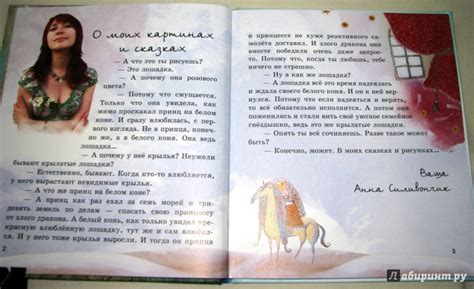 О моих картинах
и сказках
— А что это ты рисуешь?
— Это лошадка.
— А почему она розового
цвета?
— Потому что смущается.
Только что она увидела, как
мимо проскакал принц на белом
коне. И сразу влюбилась, с пер-
вого взгляда. Не в принца, конеч-
но же, а в белого коня. Она ведь
лошадка...
— А почему у неё крылья? Неужели
бывают крылатые лошадки?
— Естественно, бывают. Когда кто-то влюбляется,
у него вырастают невидимые крылья.
— А что же принц?
— А принц как раз ехал за семь морей и три-
девять земель по делам — спасать свою принцессу
от злого дракона. А белый конь, как только увидел прек-
расную влюблённую лошадку, тут же и сам влюбил-
ся. И у него тоже крылья выросли. И тогда он принца
2
к принцессе не хуже реактивного са-
молёта доставил. И злого дракона они
вместе победили очень даже запрос-
то. Потому что, когда ты любишь, тебе
ничего не страшно.
— Ну а как же лошадка?
— А лошадка всё это время надеялась
и ждала своего белого коня. И он к ней вер-
нулся. Потому что если надеяться и верить,
то всё обязательно исполнится. А потом они
поженились и стали вить своё уютное семейное
гнёздышко, ведь это же крылатые лошадки.
— Опять ты всё сочиняешь. Разве такое может
быть?
— Конечно, может. В моих сказках и рисунках...
Ваша
Анна Силивончик
3
Лабиринт.ру